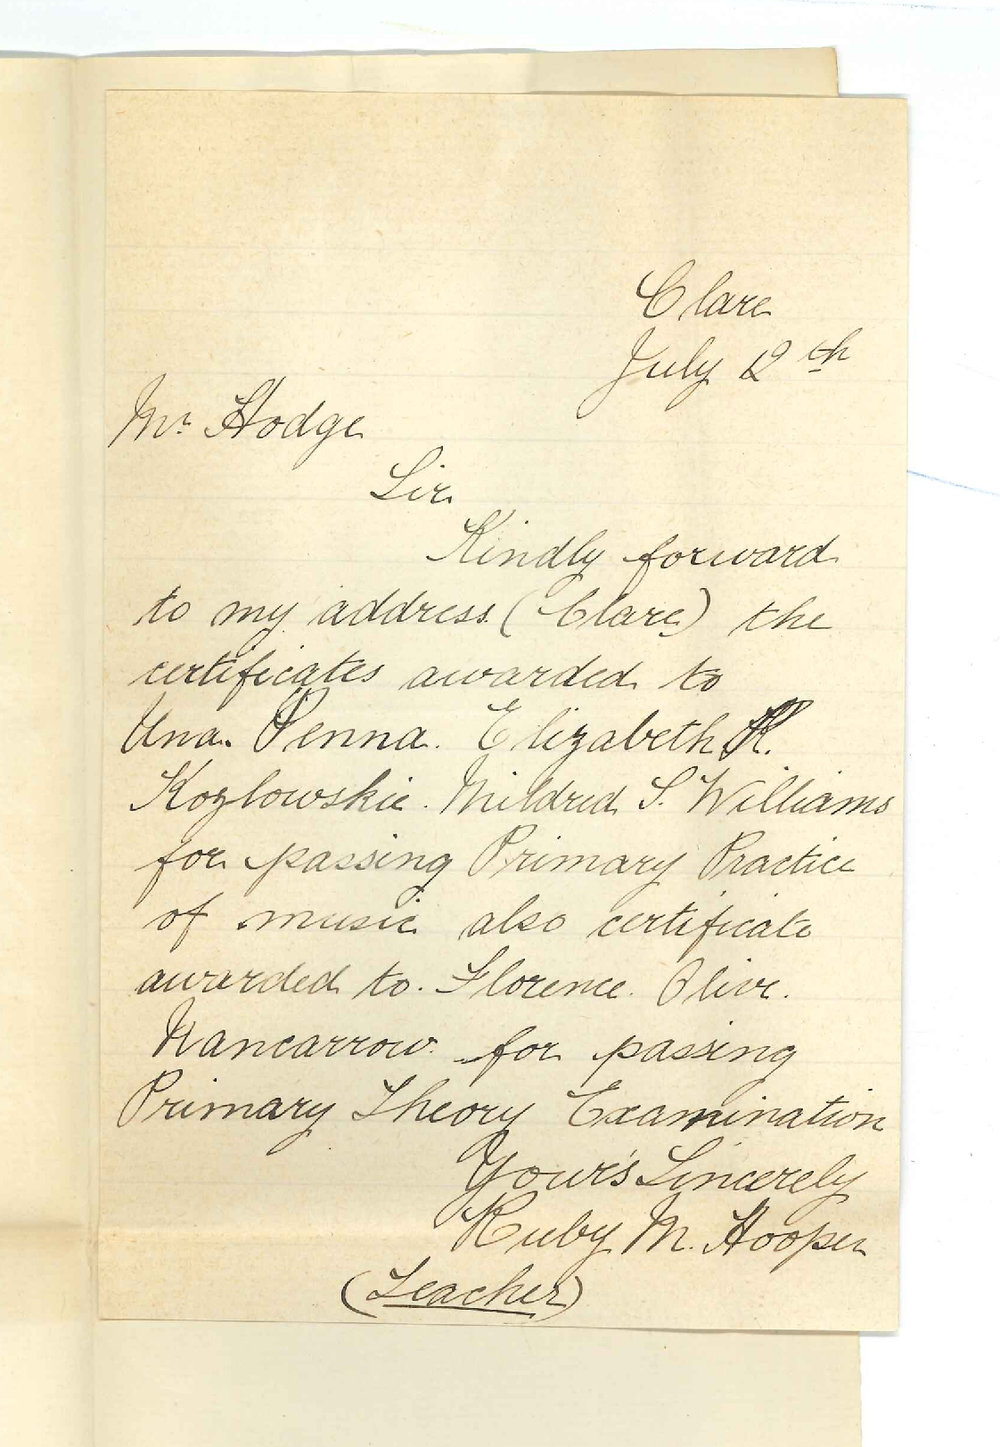 Clare
July 12th
Mr. Hodge
Sir
Kindly forward
to my address (Clare) the
certificates awarded to
Una. Penna. Elizabeth R.
Kozlowskie. Mildred S. Williams
for passing Primary Practice
of music also certificate
awarded to. Florence. Olive.
Nancarrow. for passing
Primary Theory Examination
Your's Sincerely
Ruby M. Hooper
(Teacher)